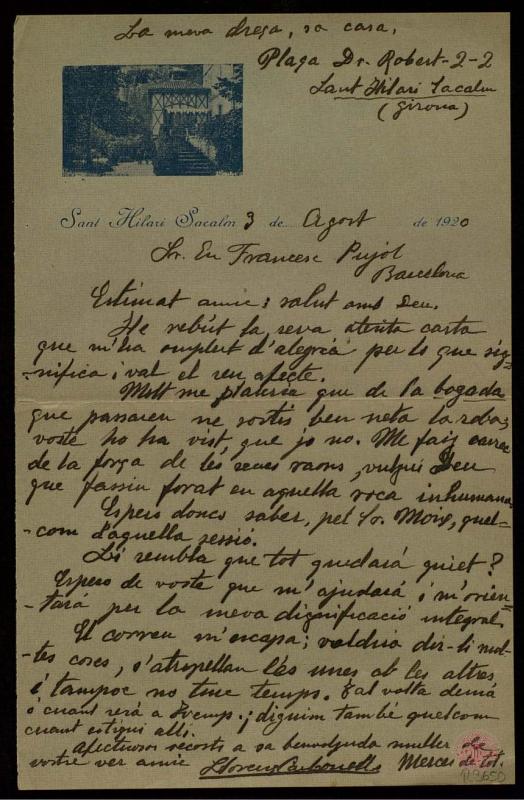 La meva dreça, sa casa,
Plaça Dr. Robert-2-2
Sant Hilari Sacalm
(Girona)
Sant Hilari Sacalm 3 de Agost de 1920
Sr. En Francesc Pujol
Barcelona
Estimat amic: salut amb Deu.
He rebut la seva atenta carta
que m'ha omplert d'alegria per lo que sig-
-nifica i val el seu afecte.
Molt me plauria que de la bogada
que passaren ne sortis ben neta la roba;
voste ho ha vist, que jo no. Me faig carrec
de la força de les seues raons, vulgui Deu
que fassin forat en aquella roca inhumana.
Espero doncs saber, pel Sr. Moix, quel-
-com d'aquella sessió.
Li sembla que tot quedará quiet?
Espero de voste que m'ajudará i m'orien-
-tará per la meva dignificació integral.
El correu m'escapa; voldria dir-li mol-
-tes coses, s'atropellan les unes ab les altres,
i tampoc no tinc temps. Tal volta demá
o cuant será a ; diguim també quelcom
cuant estigui alli.
Afectuosos recorts a sa benvolguda muller de
vostre ver amic Llorenç Carbonell Merces de tot.
R.8650